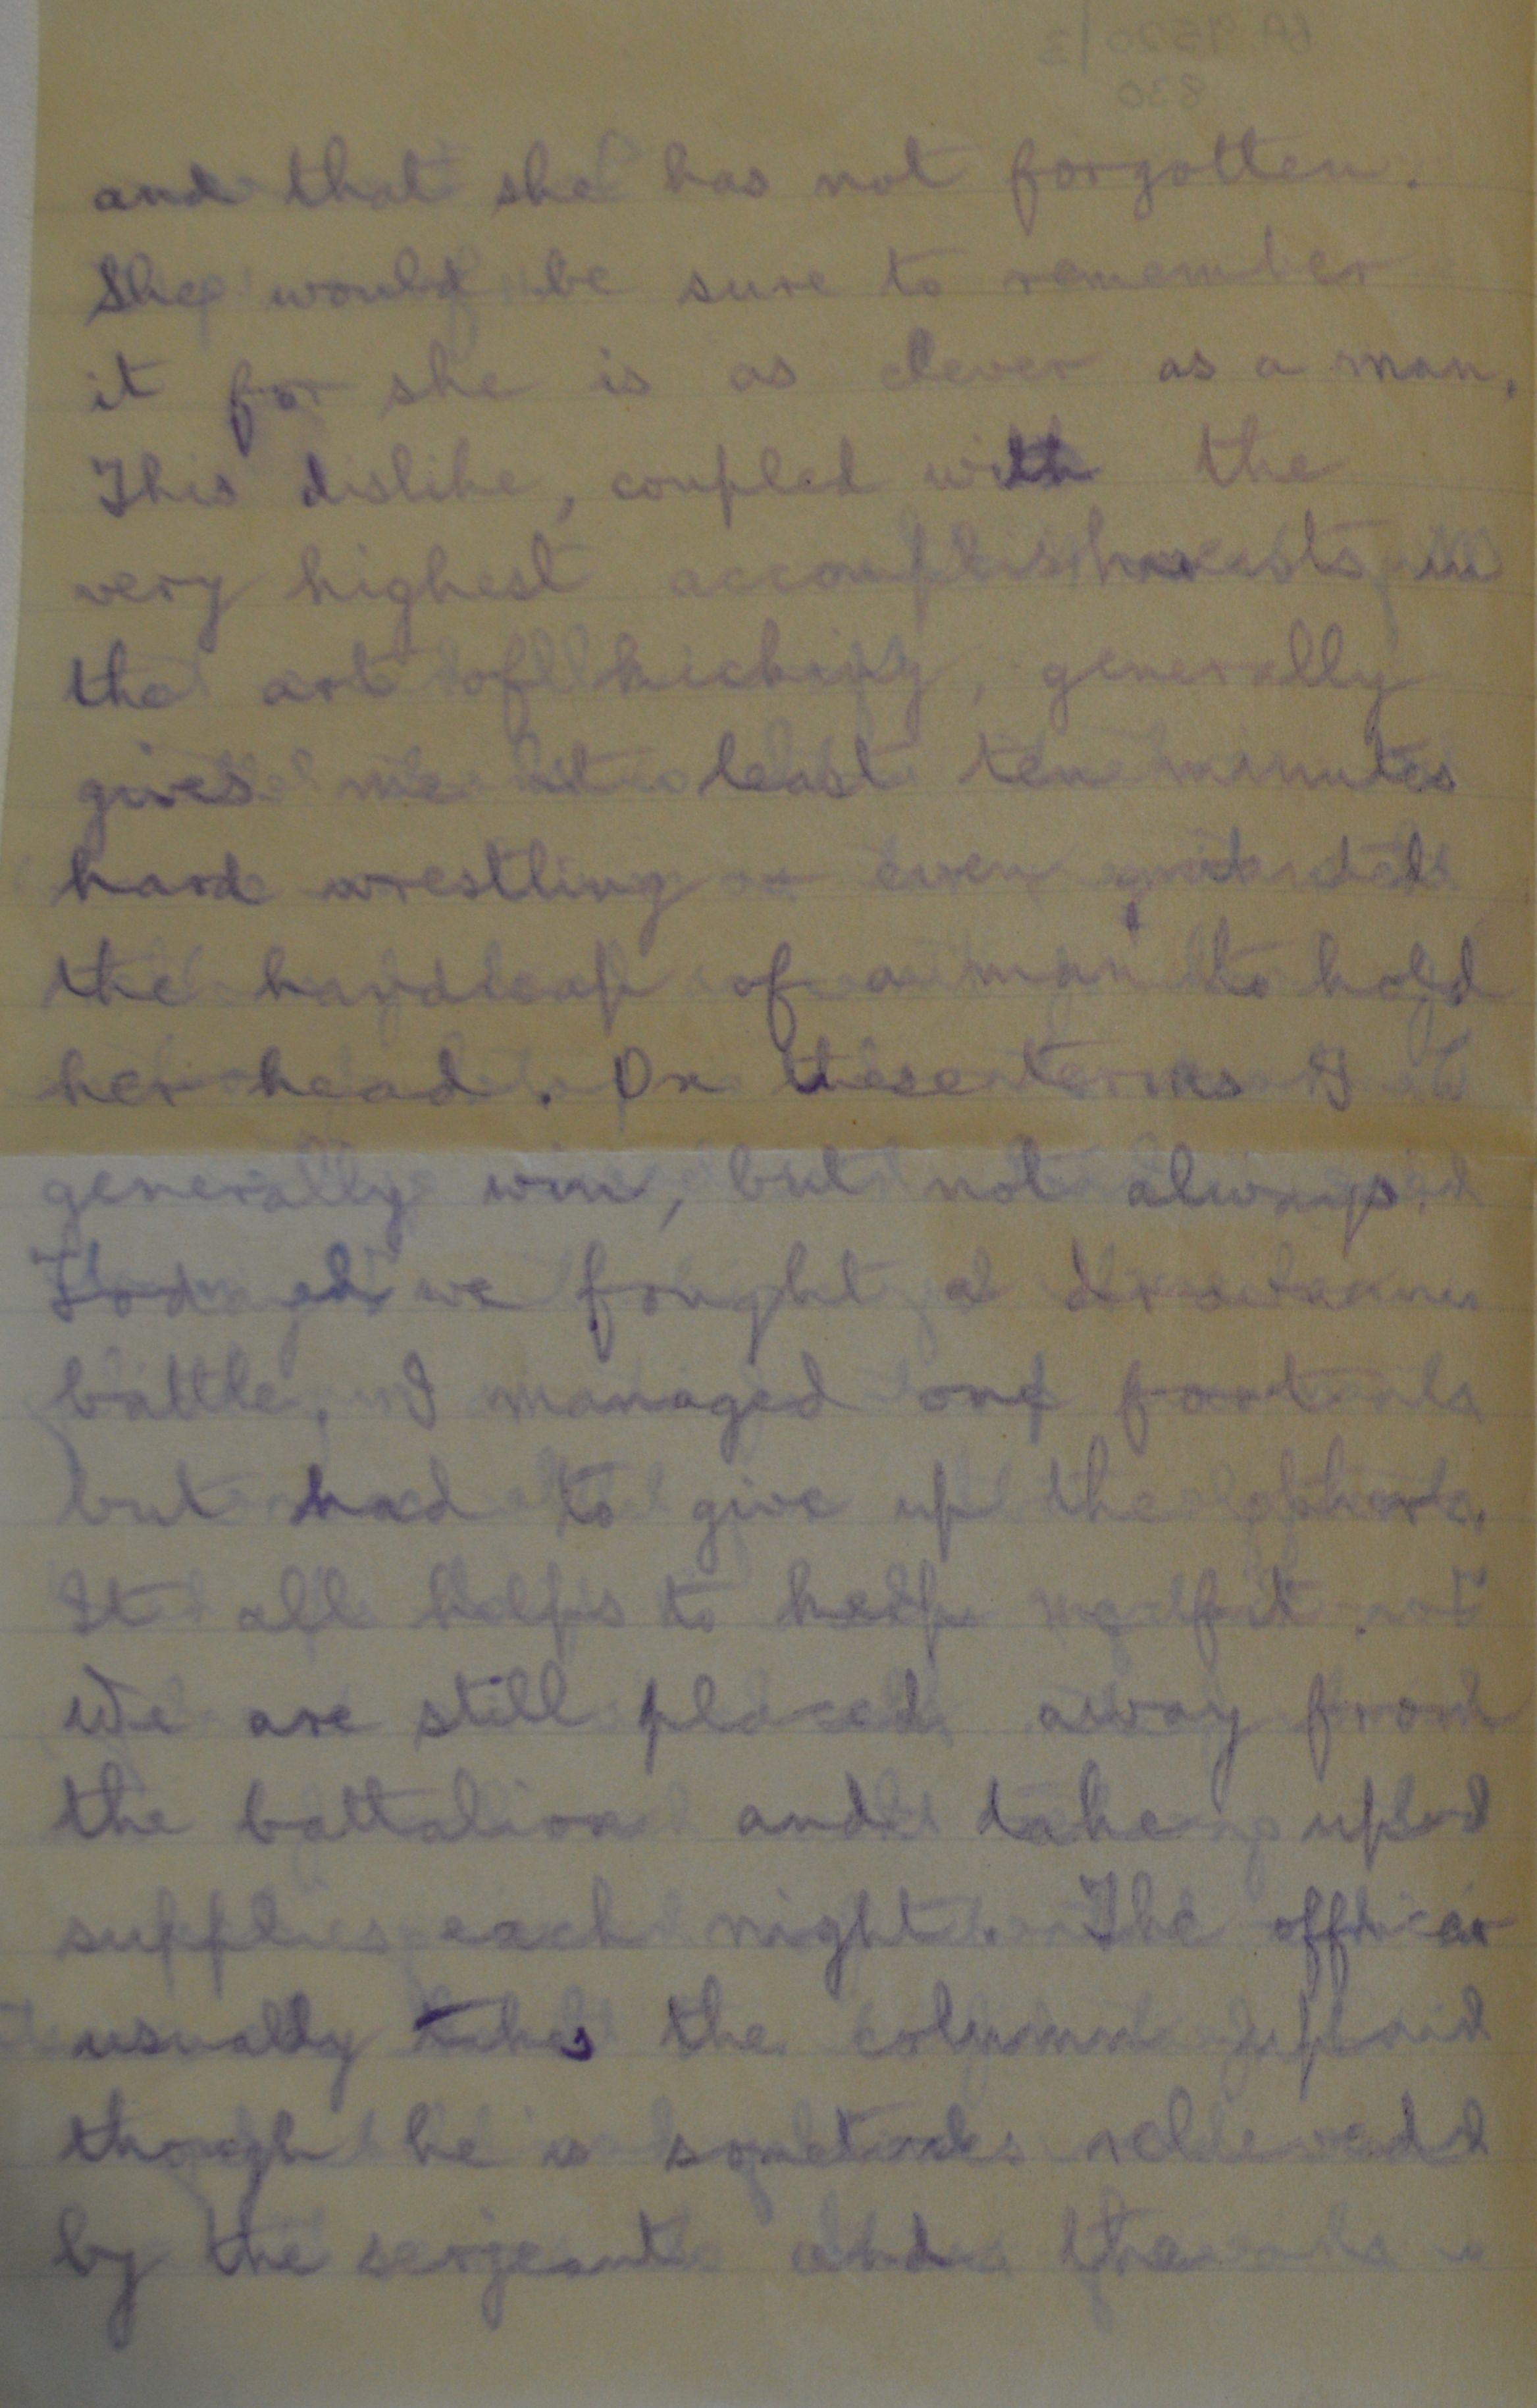 and that she has not forgotten.
She would be sure to remember
it for she is as clever as a man.
This dislike, coupled with the
very highest accomplishments in
the art of kicking, generally
gives me at least ten minutes
hard wrestling even
the handicap of a man to hold
her head. On these terms I
generally win, but not always.
Today we fought a drawn
battle, I managed one foot
but had to give up the other.
It all helps to keep me fit.
We are still placed away from
the battalion and take up
supplies each night. The officer
usually takes the column up
though he is sometimes relieved
by the sergeant and the